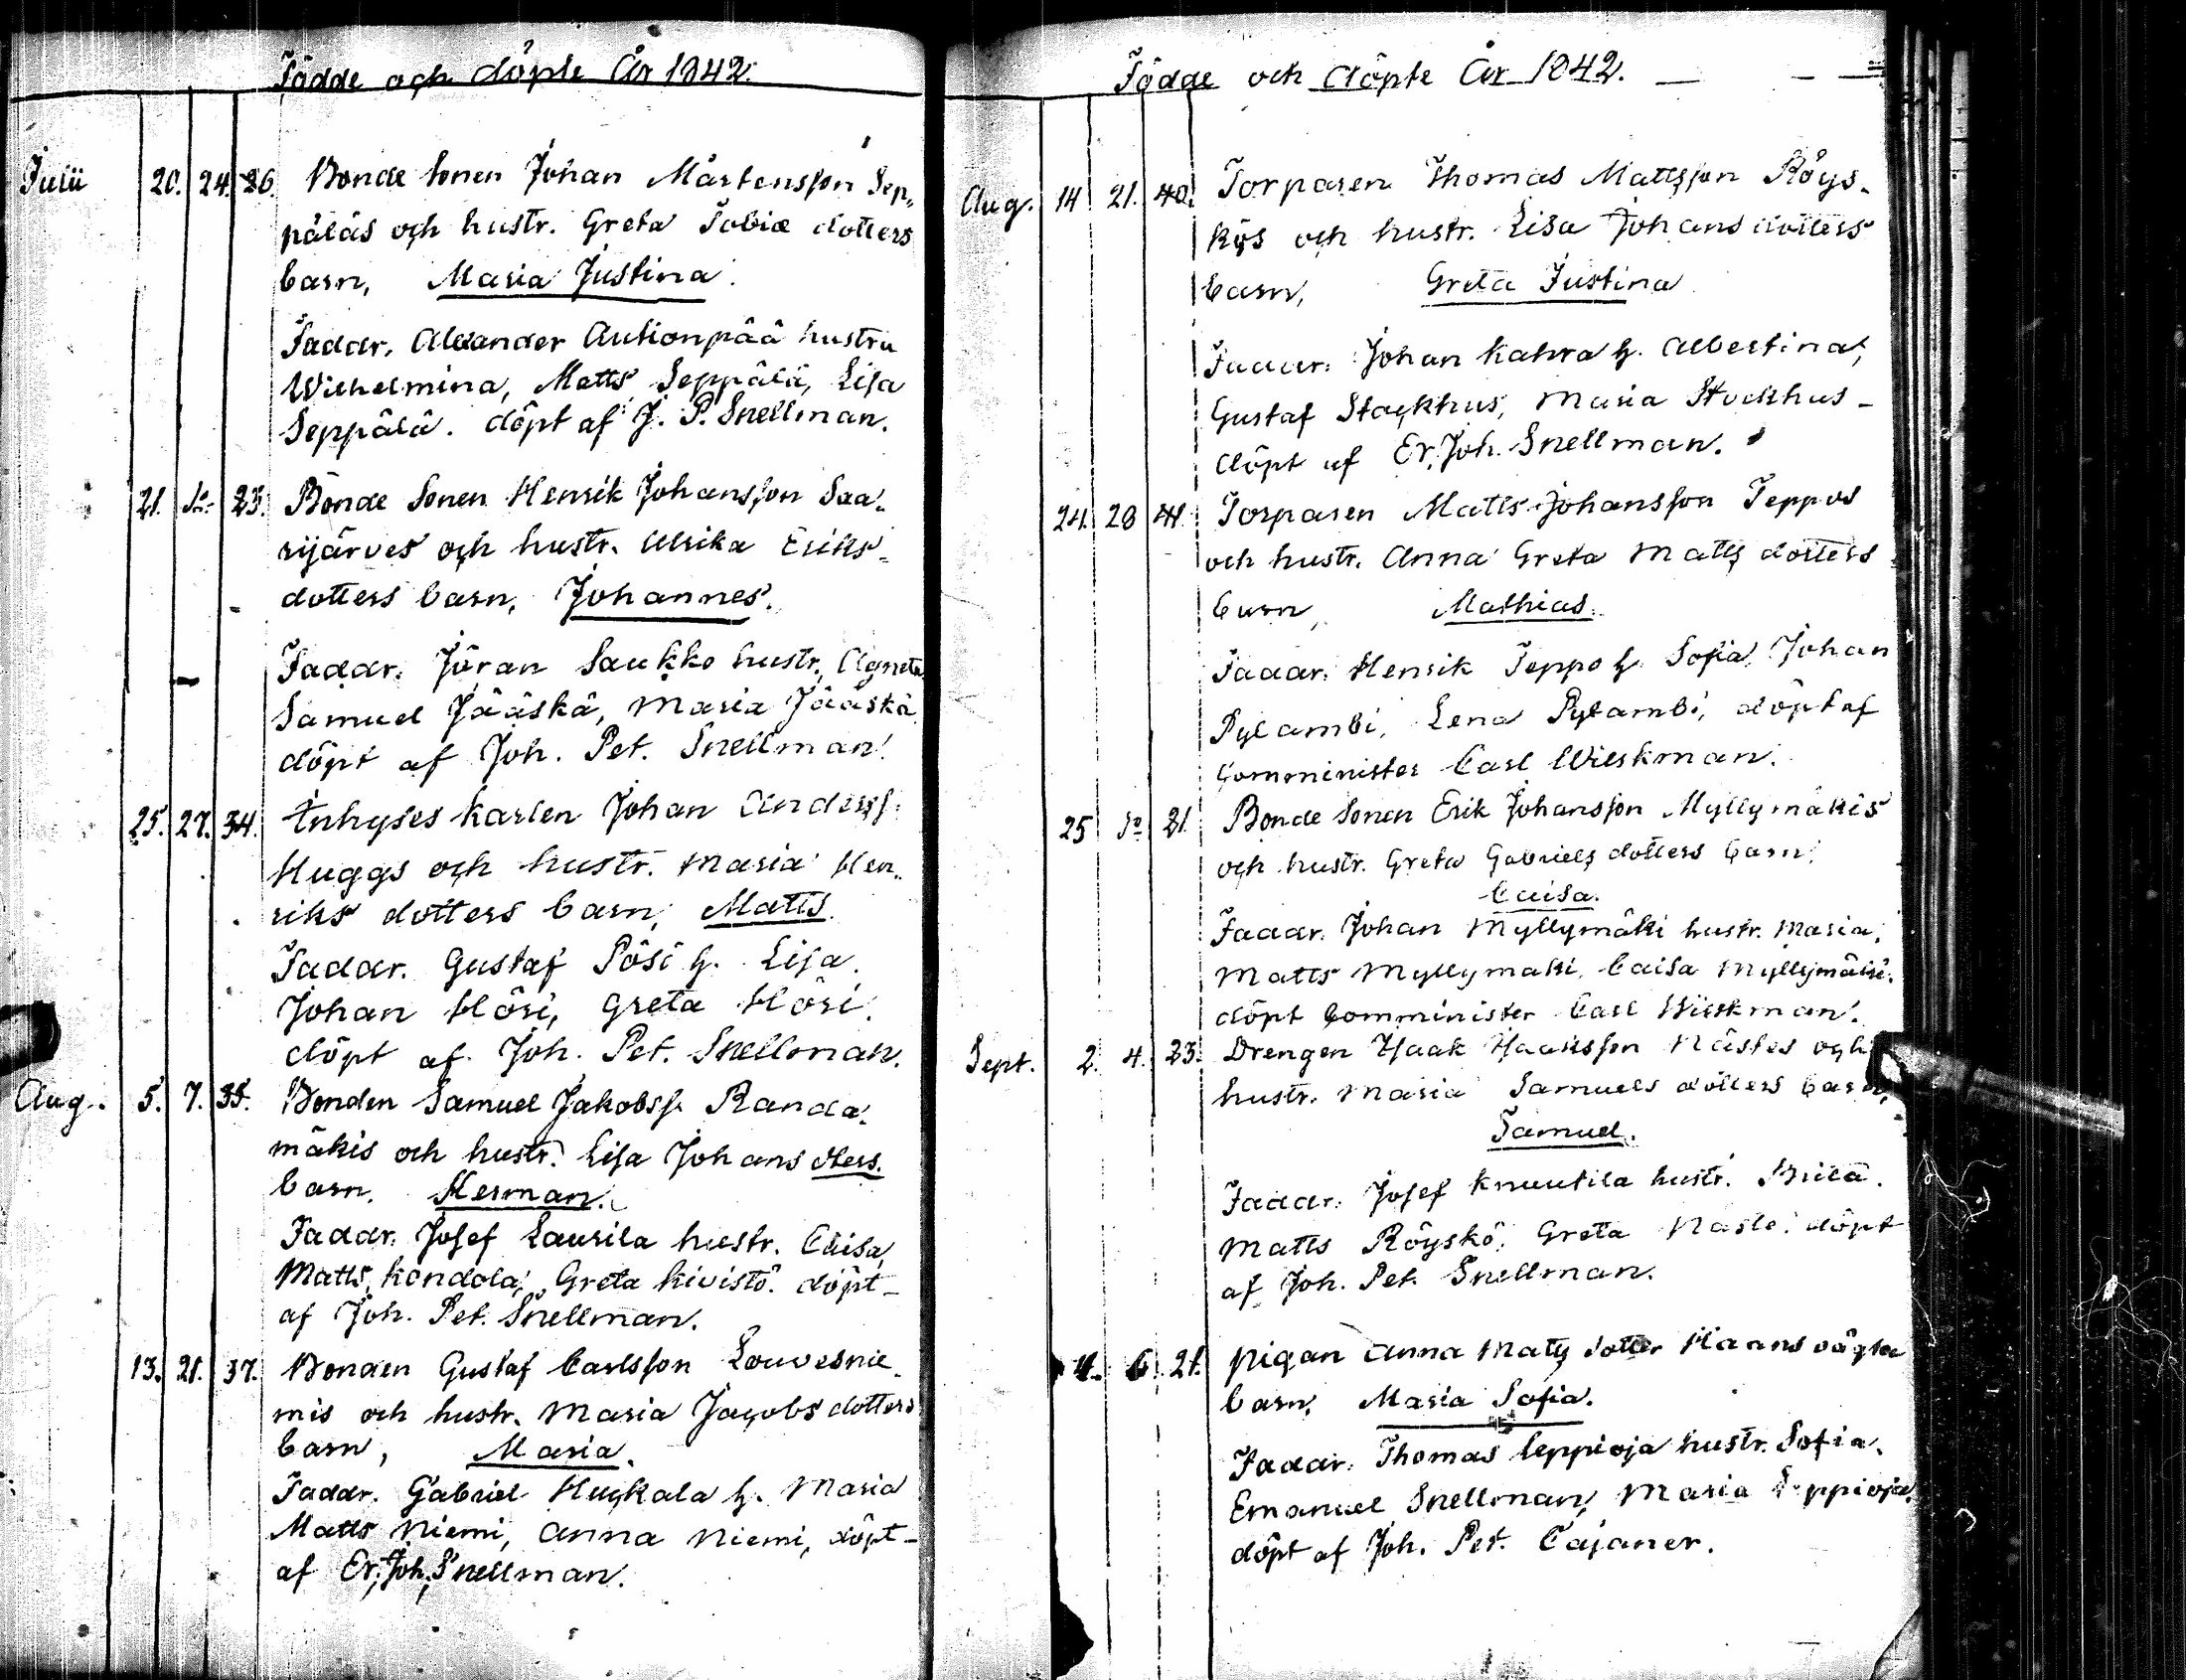 Födde och döpte År 1842.
Julii 20. 24. 26. Bonde Sonen Johan Mårtensson Sep„
päläs och hustr. Greta Tobiæ dotters
barn, Maria Justina.
Faddr. Alexander Autionpää hustru
Wilhelmina, Matts Seppälä, Lisa
Seppälä. döpt af J. P. Snellman.
21. do 23. Bonde Sonen Henrik Johansson Saa„
rijärves och hustr. Ulrika Eriks„
dotters barn, Johannes.
Faddr. Jöran Saukko hustr. Agneta
Samuel Jääskä, Maria Jääskä
döpt af Joh. Pet. Snellman.
25. 27. 34. Inhyses karlen Johan Anderss.
Huggs och hustr. Maria Hen„
riks dotters barn, Matts.
Faddr. Gustaf Pösi h. Lisa.
Johan Höri, Greta Höri.
döpt af Joh. Pet. Snellman.
Aug. 5. 7. 35. Bonden Samuel Jakobss. Randa„
mäkis och hustr. Lisa Johans dters.
barn. Herman.
Faddr. Josef Laurila hustr. Caisa,
Matts Kondola, Greta Kivistö. döpt
af Joh. Pet. Snellman.
13. 21. 37. Bonden Gustaf Carlsson Louvesnie„
mis och hustr. Maria Jacobs dotters
barn, Maria.
Faddr. Gabriel Huckala h. Maria
Matts Niemi, Anna Niemi, döpt
af Er. Joh. Snellman.
Födde och döpte År 1842.
Aug. 14 21. 40. Torparen Thomas Mattsson Röys„
kös och hustr. Lisa Johans dotters
barn, Greta Justina
Faddr. Johan Katva h. Albertina,
Gustaf Stockhus, Maria Stockhus
döpt af Er. Joh. Snellman.
24. 28 41. Torparen Matts Johansson Teppos
och hustr. Anna Greta Matts dotters
barn, Mathias.
Faddr. Henrik Teppo h. Sofia, Johan
Pylambi, Lena Pylambi, döpt af
Comminister Carl Wieskman.
25 do 21. Bonde Sonen Erik Johansson Myllymäkis
och hustr. Greta Gabriels dotters barn,
Caisa.
Faddr. Johan Myllymäki hustr. Maria,
Matts Myllymäki, Caisa Myllymäki.
döpt Comminister Carl Wieskman.
Sept. 2. 4. 23. Drengen Isaak Isaaksson Nästes och
hustr. Maria Samuels dotters barn,
Samuel.
Faddr. Josef Knuutila hustr. Brita.
Matts Röyskö, Greta Näste. döpt
af Joh. Pet. Snellman.
4. 6. 21. Pigan Anna Matts dotter Haans oägta
barn, Maria Sofia.
Faddr. Thomas Leppioja hustr. Sofia.
Emanuel Snellman, Maria Leppioja.
döpt af Joh. Pet. Cajaner.